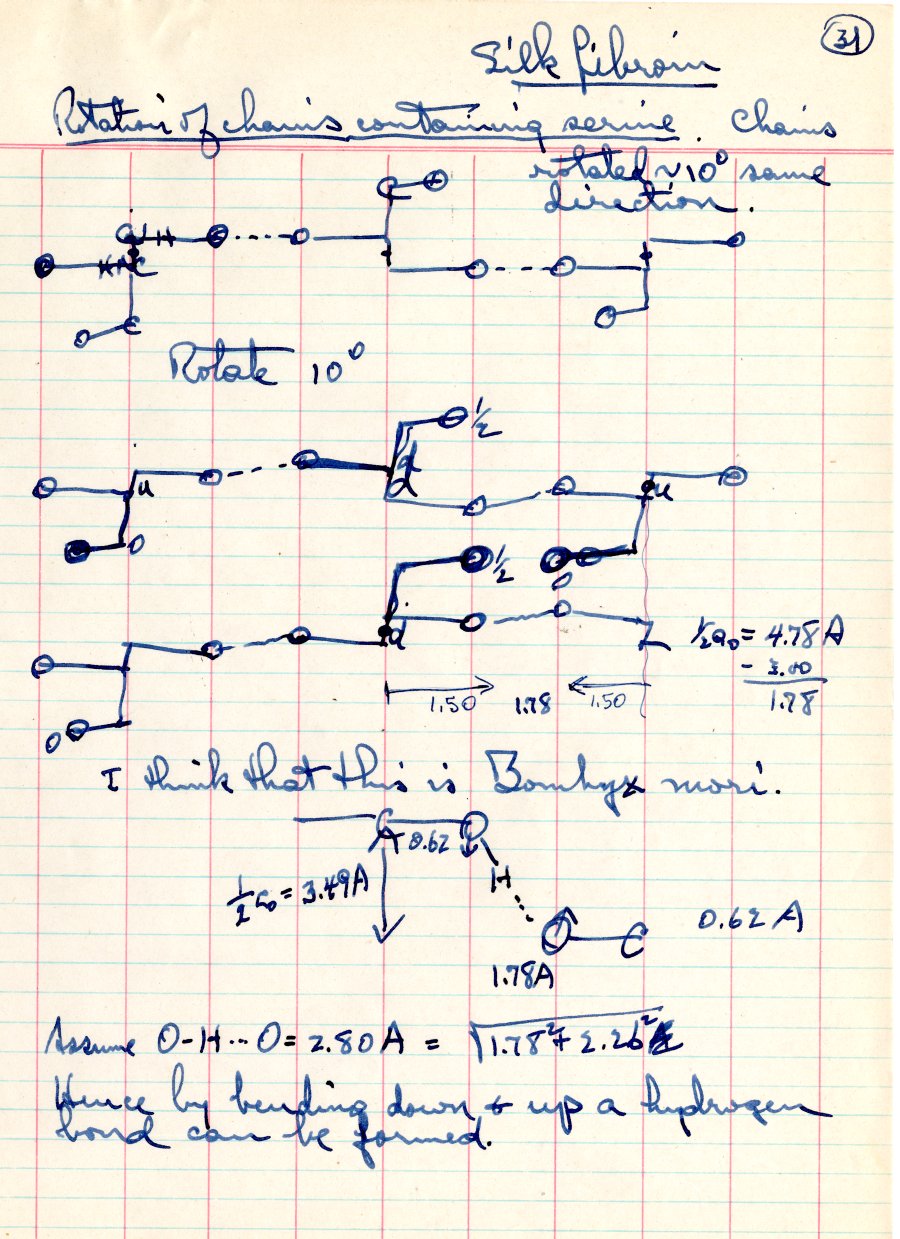 31
Silk fibroin
Rotation of chains containing serine. Chains
rotated ~10° same
direction.
C O
C H O O
O H N C
O C
Rotate 10°
1/2
d
u
d
u
O
1/2
O
d
½a₀ = 4.78 A
- 3.00
1.78
1.50 1.78 1.50
O
I think that this is Bombyx mori.
C 0.62 O
½c₀ = 3.49A
H
O C 0.62 A
1.78A
Assume O-H···O = 2.80 A = √1.78² + 2.26²
Hence by bending down & up a hydrogen
bond can be formed.